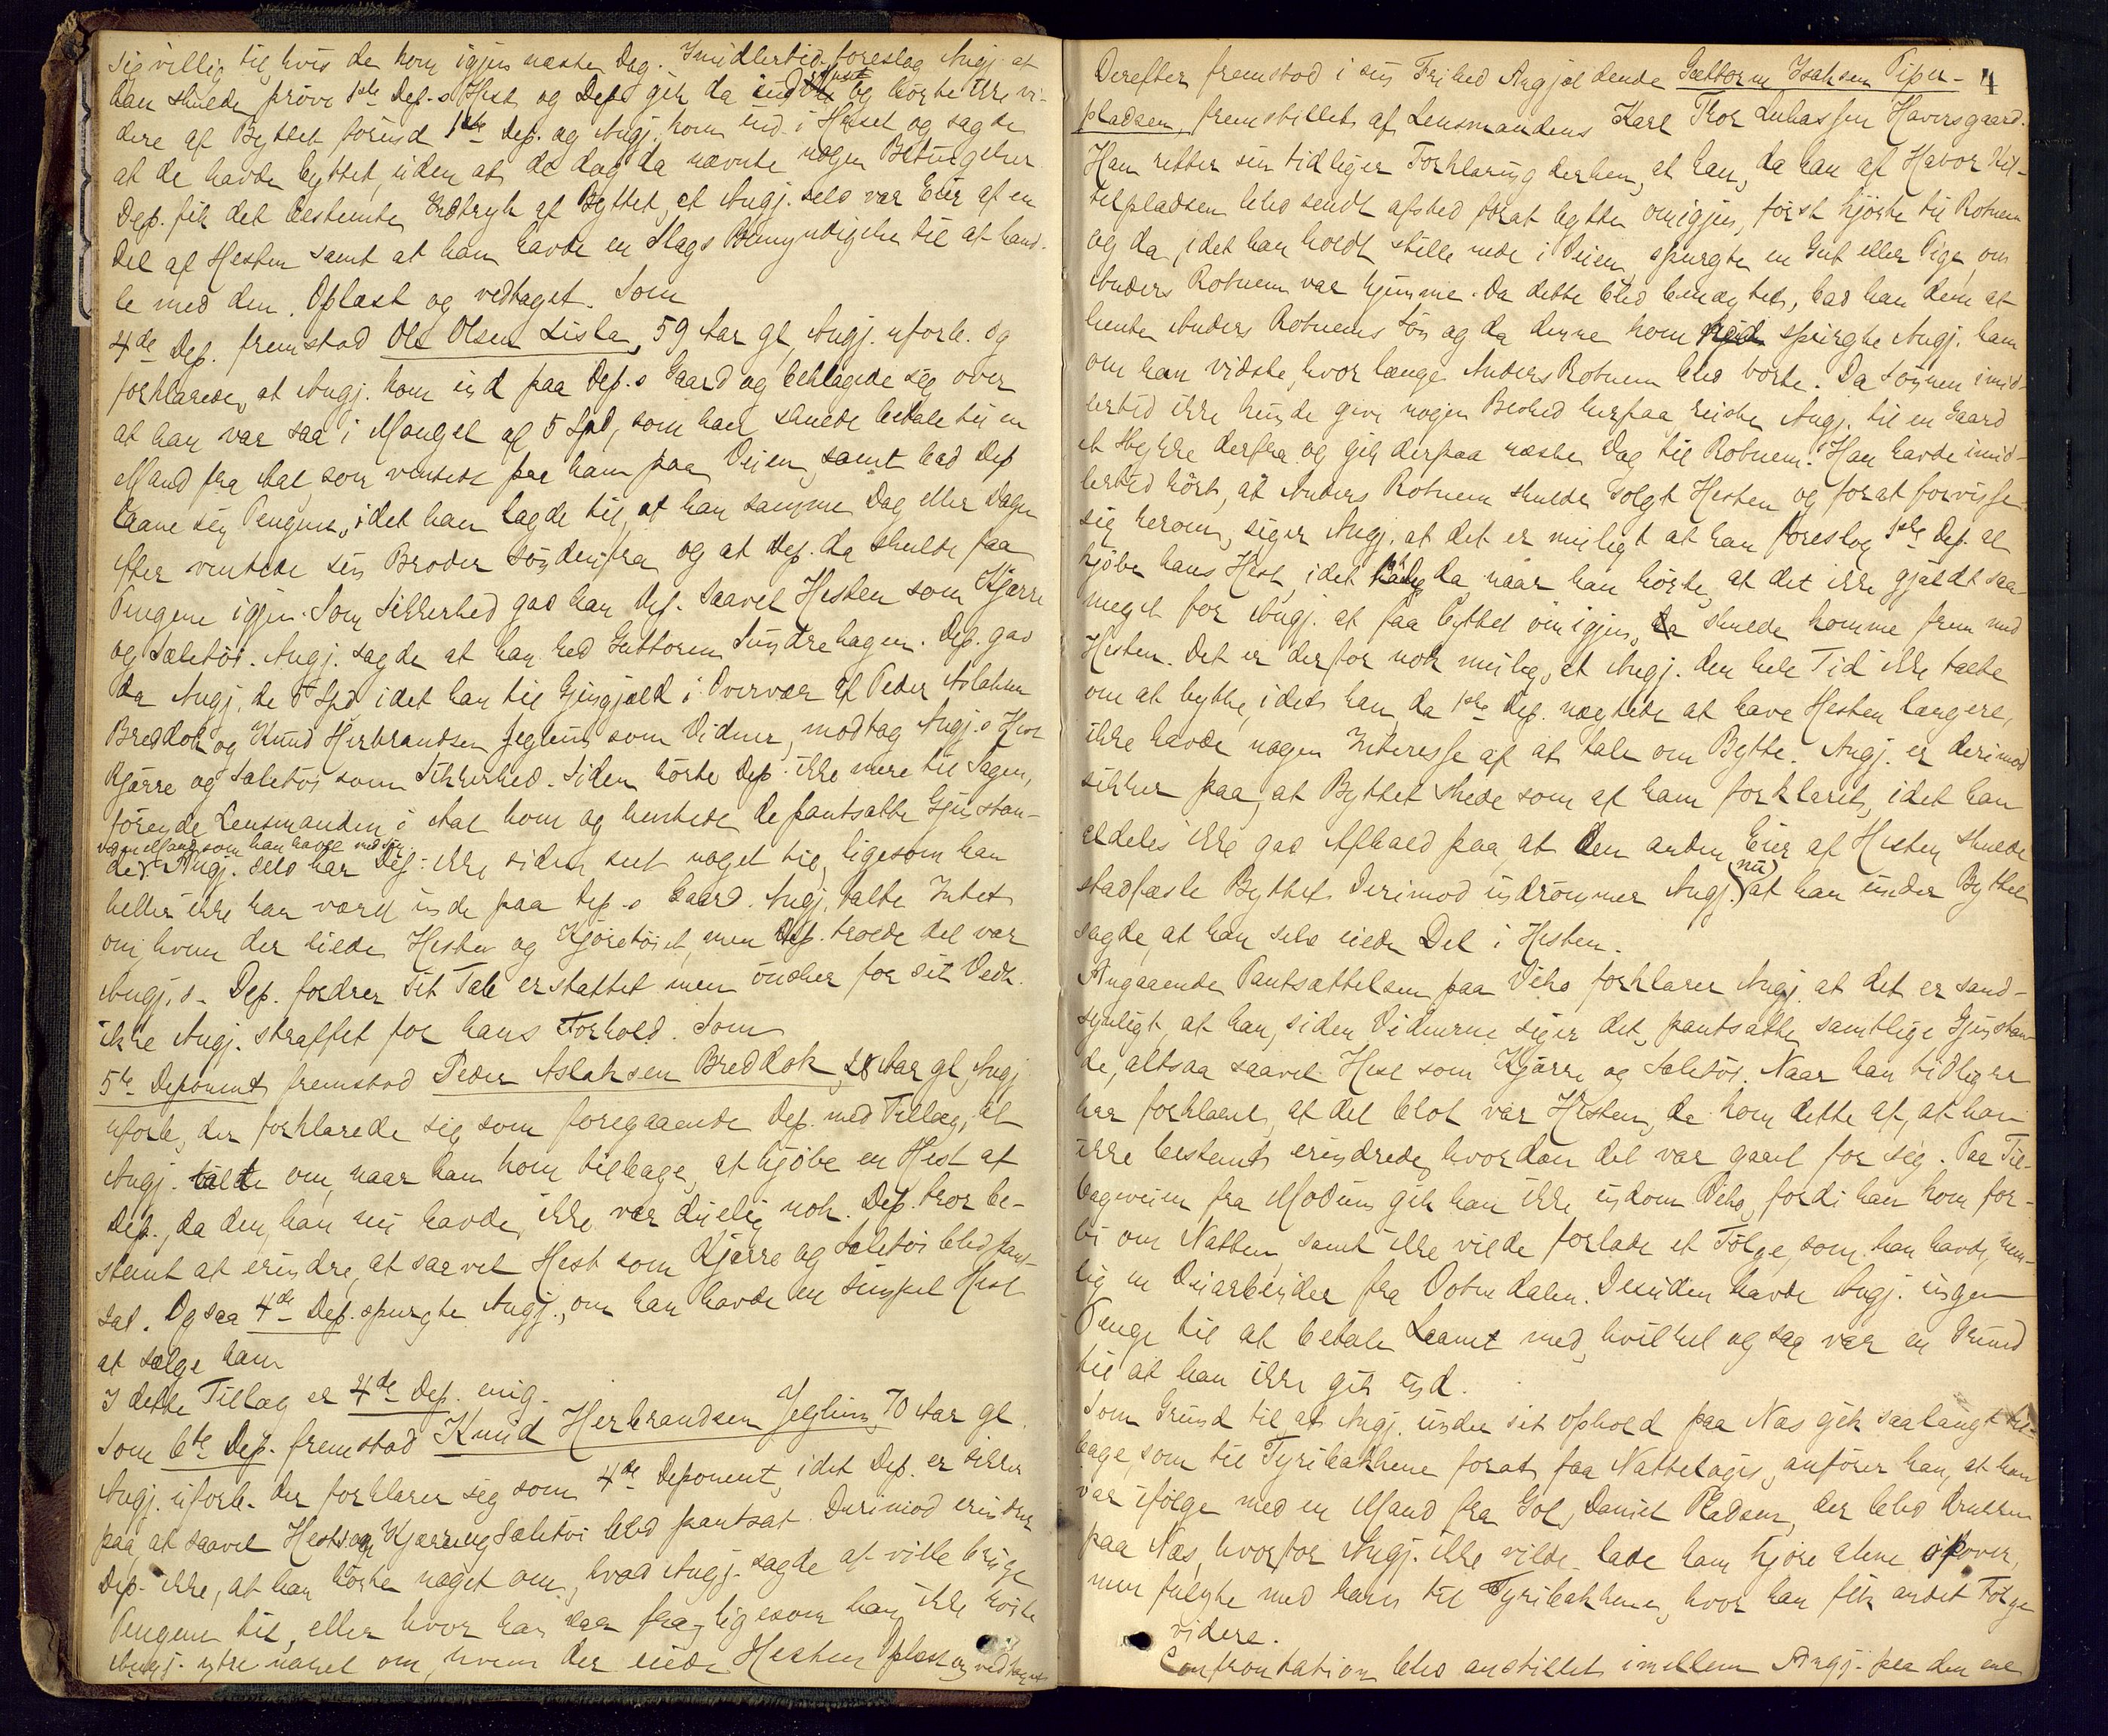 sig villig til, hvis de kom igjen næste Dag. Imidlertid foreslog Angj. at
han skulde prøve 1ste Dep.s Hest og Dep. gik da ind og hørte ikke vi-
dere af Byttet, förend 1ste Dep. og Angj. kom ind i Huset og sagde
at de havde byttet, uden at de dog da nævnte nogen Betingelser.
Dep. fik det bestemte Indtryk af Byttet, at Angj. selv var Eier af en
Del af Hesten samt at han havde en Slags Bemyndigelse til at hand-
le med den. Oplæst og vedtaget. Som
4de Dep. fremstod Ole Olsen Lisla, 59 Aar gl, Angj. uforb. og
forklarede, at Angj. kom ind paa Dep.s Gaard og beklagede sig over
at han var saa i Mangel af 5 Spd, som han skulde betale til en
Mand fra Aal, som ventede paa ham paa Veien, samt bad Dep
laane sig Pengene, idet han lagde til, at han samme Dag eller Dagen
efter ventede sin Broder søndenfra og at Dep. da skulde faa
Pengene igjen. Som Sikkerhed gav han Dep. saavel Hesten som Kjærre
og Sæletöi. Angj. sagde at han hed Guttorm Sundrehagen. Dep. gav
da Angj. de 5 Spd idet han til Gjengjæld i Overvær af Peder Aslaksen
Breddok og Knud Herbrandsen Jeglum som Vidner, modtog Angj.s Hest
Kjærre og Sæletöi som Sikkerhed. Siden hörte Dep. ikke mere til Sagen,
förend Lensmanden i Aal kom og hentede de pantsatte Gjenstan-
ved en Mand som han havde med sig
de. Angj. selv har Dep. ikke siden seet noget til, ligesom han
heller ikke har været inde paa Dep.s Gaard. Angj. talte Intet
om, hvem der eiede Hesten og Kjöretöiet, men Dep. troede det var
Angj.s. Dep. fordrer sit Tab erstattet men önsker for sit Vedk.
ikke Angj. straffet for hans Forhold. Som
5te Deponent fremstod Peder Aslaksen Breddok, 28 Aar gl, Angj
uforb., der forklarede sig som foregaaende Dep. med Tillæg, at
Angj. talte om, naar han kom tilbage, at kjöbe en Hest af
Dep., da den, han nu havde, ikke var duelig nok. Dep. tror be-
stemt at erindre, at saavel Hest som Kjærre og Sæletöi blev pant-
sat. Ogsaa 4de Dep. spurgte Angj., om han havde en simpel Hest
at sælge ham
I dette Tillæg er 4de Dep. enig.
Som 6te Dep. fremstod Knud Herbrandsen Jeglum, 70 Aar gl.
Angj. uforb. der forklarer sig som 4de Deponent, idet Dep. er sikker
paa, at saavel Hest som Kjærre og Sæletöi blev pantsat. Derimod erindrer
Dep. ikke, at han hörte noget om, hvad Angj. sagde at ville bruge
Pengene til, eller hvor han var fra, ligesom han ikke hörte
Angj. ytre noget om, hvem der eiede Hesten Oplæst og vedtaget
4
Derefter fremstod i sin Frihed Angjældende Guttorm Isaksen Piper-
pladsen, fremstillet af Lensmandens Karl Thor Lukassen Haversgaard.
Han retter sin tidligere Forklaring derhen, at han, da han af Havor Kit-
telpladsen blev sendt afsted forat bytte omigjen, först kjörte til Rotnem
og da, idet han holdt stille nede i Veien, spurgte en Gut eller Pige, om
Anders Rotnem var hjemme. Da dette blev benægtet, bad han dem at
hente Anders Rotnems Sön og da denne kom ned spurgte Angj. ham
om han vidste, hvor længe Anders Rotnem blev borte. Da Sönnen imid-
lertid ikke kunde give nogen Besked herpaa reiste Angj. til en Gaard
et Stykke derfra og gik derpaa næste Dag til Rotnem. Han havde imid-
lertid hört, at Anders Rotnem skulde solgt Hesten og forat forvisse
sig herom, siger Angj. at det er muligt at han foreslog 1ste Dep. at
kjöbe hans Hest, idet da naar han hörte, at det ikke gjaldt saa
meget for Angj. at faa Byttet omigjen, skulde komme frem med
Hesten. Det er derfor nok mulig, at Angj. den hele Tid ikke talte
om at bytte, idet han, da 1ste Dep. nægtede at have Hesten længere,
ikke havde nogen Interesse af at tale om Bytte. Angj. er derimod
sikker paa, at Byttet skede som af ham forklaret, idet han
aldeles ikke gav Afkald paa, at den anden Eier af Hesten skulde
stadfæste Byttet. Derimod indrömmer Angj. (nu) at han under Byttet
sagde, at han selv eiede Del i Hesten.
Angaaende Pantsættelsen paa Viko forklarer Angj. at det er sand-
synligt, at han, siden Vidnerne siger det, pantsatte samtlige Gjenstan-
de, altsaa saavel Hest som Kjærre og Sæletöi. Naar han tidligere
har forklaret, at det blot var Hesten, da kom dette af, at han
ikke bestemt erindrede, hvordan det var gaaet for sig. Paa Til-
bageveien fra Modum gik han ikke indom Viko, fordi han kom for-
bi om Natten, samt ikke vilde forlade et Fölge, som han havde, nem-
lig en Veiarbeider fra Østerdalen. Desuden havde Angj. ingen
Penge til at betale Laanet med, hvilket ogsaa var en Grund
til at han ikke gik ind.
Som Grund til, at Angj. under sit Ophold paa Næs gik saalangt til-
bage, som til Tyribakkene forat faa Nattelogis, anförer han, at han
var ifölge med en Mand fra Gol, Daniel Pladsen, der blev drukken
paa Næs, hvorfor Angj. ikke vilde lade ham kjöre alene opover,
men fulgte med ham til Tyribakkene, hvor han fik andet Fölge
videre.
Confrontation blev anstillet imellem Angj. paa den ene